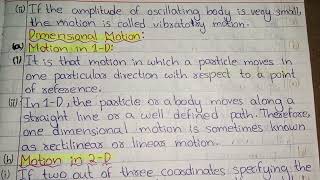 (ii) If the amplitude of oscillating body is very small,
the motion is called vibratory motion.
Dimensional Motion:
(a) Motion in 1-D:
(i) It is that motion in which a particle moves in
one particular direction with respect to a point
of reference.
(ii) In 1-D, the particle or a body moves along a
straight line or a well defined path. Therefore,
one dimensional motion is sometimes known
as rectilinear or linear motion.
(b) Motion in 2-D
(i) If two out of three coordinates specifying the